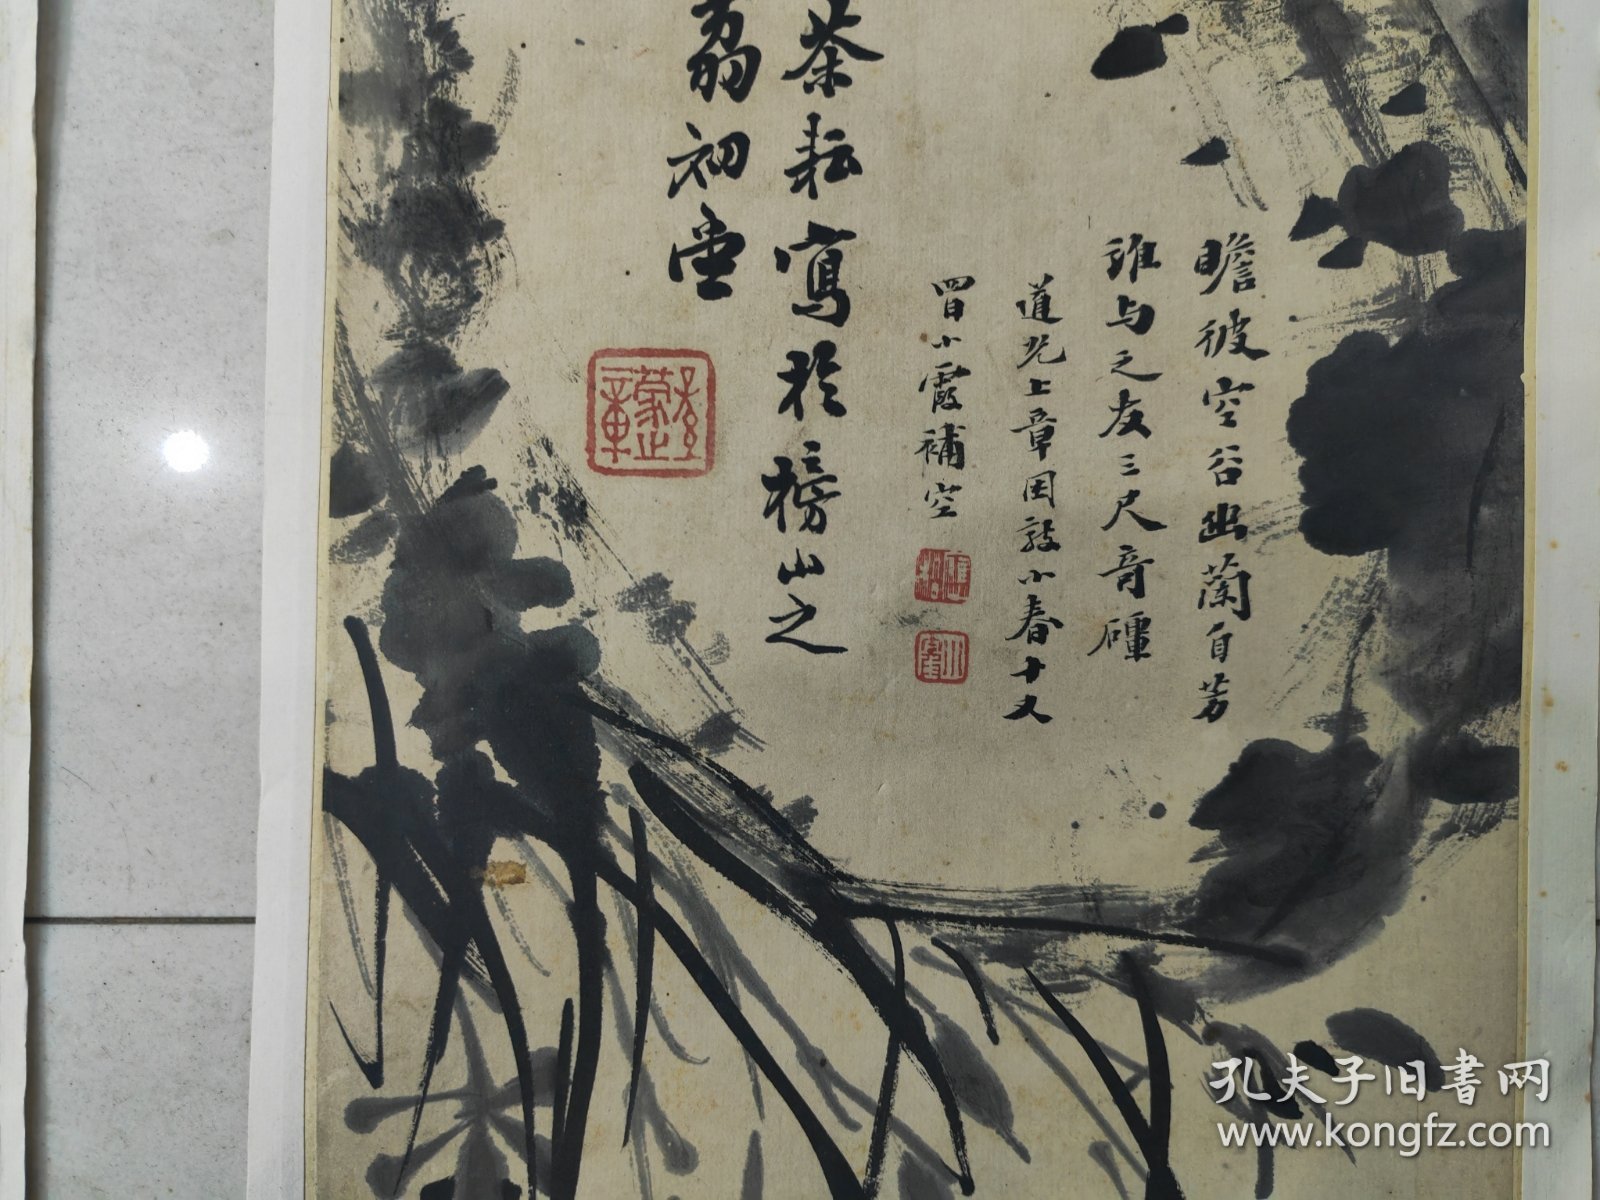 瞻彼空谷幽蘭自芳
誰与之友三尺音
道光上章困敦小春十又
四日小霞補空
茶耘寫於榜山之
初堂
孔夫子旧書网
www.kongfz.com